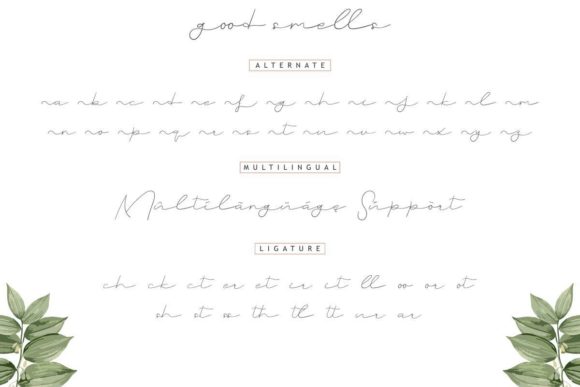 good smells
ALTERNATE
a b c d e f g h i j k l m
n o p q r s t u v w x y z
MULTILINGUAL
Múltílängüágę Süppört
LIGATURE
ch ck ct er et ir it ll oo or ot
sh st ss th tl tt ur ar